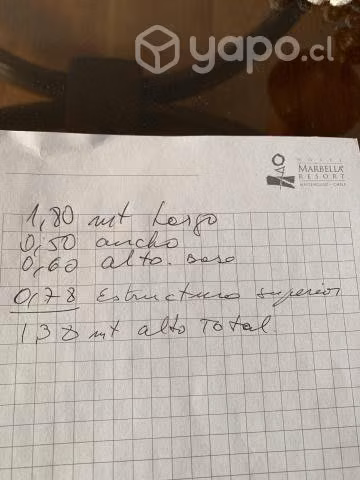 yapo.cl
HOTEL
MARBELLA
RESORT
MAITENCILLO - CHILE
1,80 mt Largo
0,50 ancho
0,60 alto. base
0,78 Estructura superior
138 mt alto Total